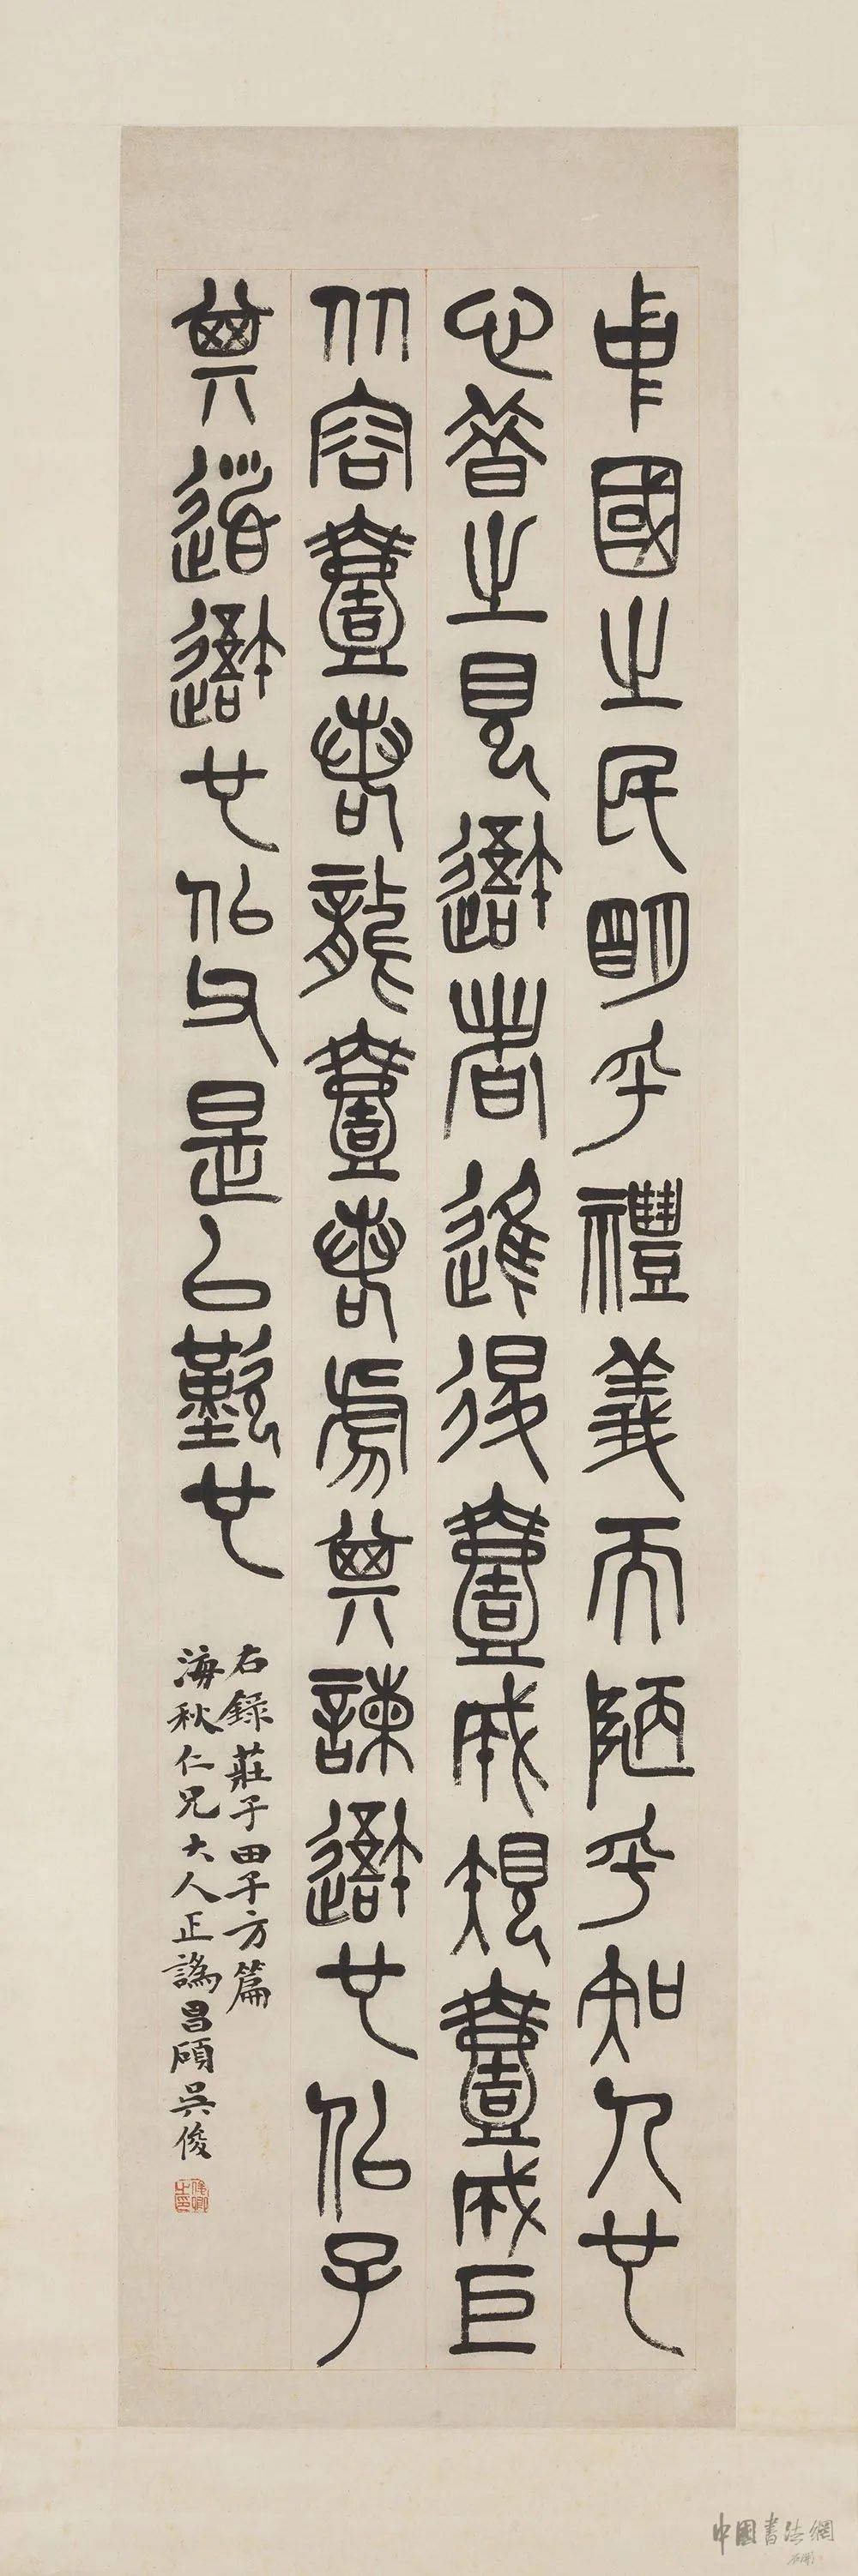 中國之民明乎禮義而陋乎知人也
心昔之見吾者進退壹成規壹成巨
从容壹若龍壹若虎其諫吾也似子
其道吾也似父是以歎也
右錄莊子田子方篇
海秋仁兄大人正譌昌碩吳俊
俊卿之印
中國書法網